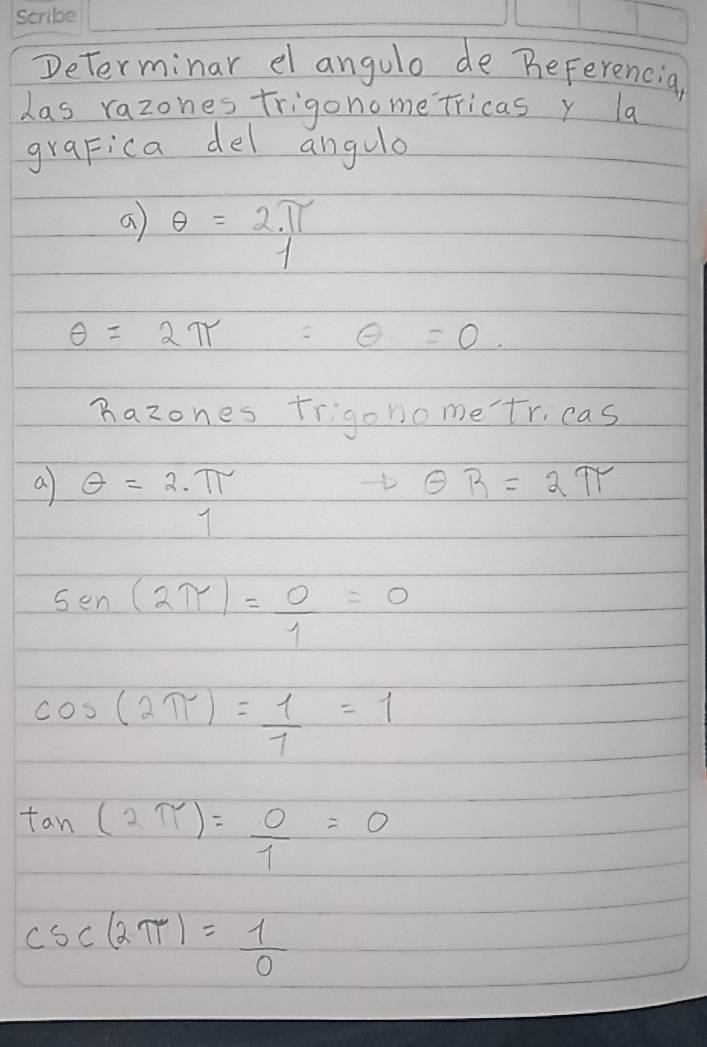 Scribe
Determinar el angulo de Referencia,
Las razones trigonometricas y la
grafica del angulo
a) θ = 2.π/1
θ = 2π = θ = 0.
Razones trigonometricas
a) θ = 2.π/1 → θR = 2π
sen (2π) = 0/1 = 0
cos (2π) = 1/1 = 1
tan (2π) = 0/1 = 0
csc (2π) = 1/0